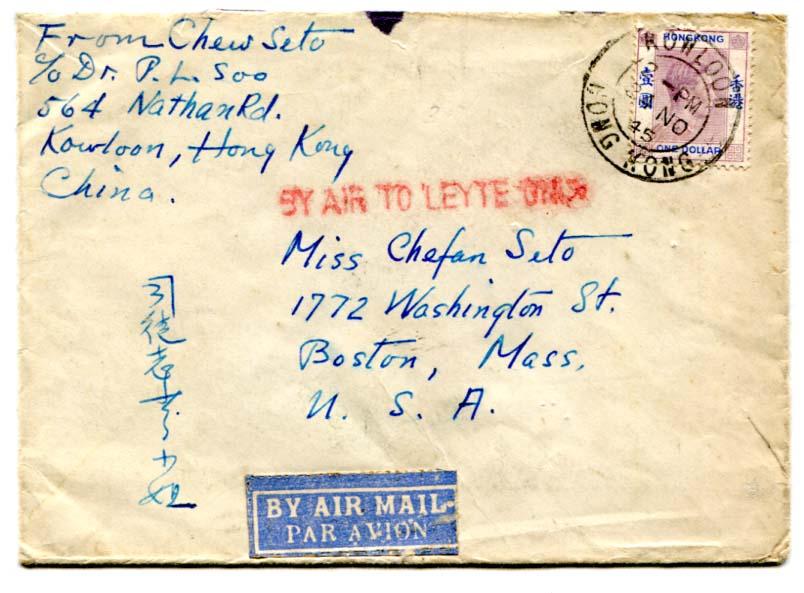 From Chew Seto
c/o Dr. P. L. Soo
564 Nathan Rd.
Kowloon, Hong Kong
China.
HONGKONG
壹圓
香港
ONE DOLLAR
KOWLOON
1-PM
NO
45
HONG KONG
BY AIR TO LEYTE ONLY
Miss Chefan Seto
1772 Washington St.
Boston, Mass.
U. S. A.
司徒 小姐
BY AIR MAIL
PAR AVION